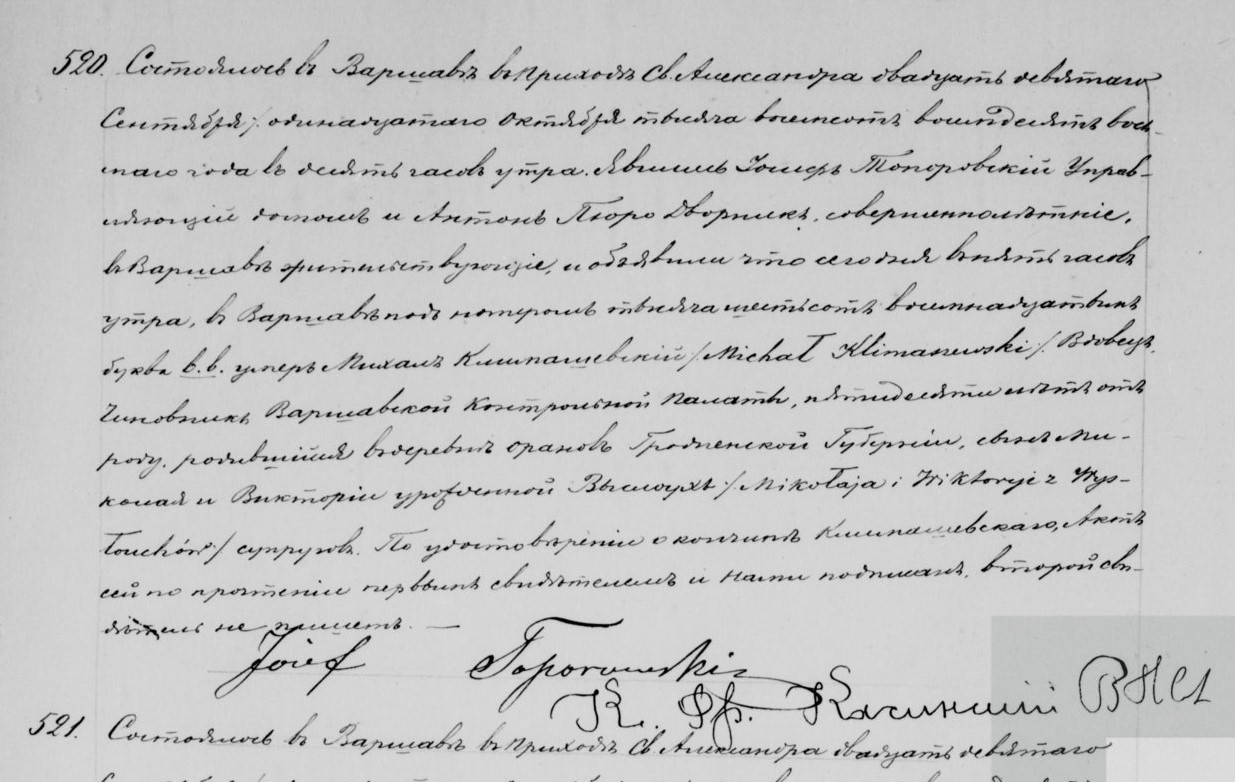 520. Состоялось въ Варшавѣ въ приходѣ Св. Александра двадцать девятаго
Сентября /. одинадцатаго Октября тысяча восемьсотъ восемдесятъ вось-
маго года въ десять часовъ утра. Явились Іосифъ Топоровскій Управ-
ляющій домомъ и Антонъ Пюро Дворникъ, совершеннолѣтніе,
въ Варшавѣ жительствующіе, и объявили что сегодня въ пять часовъ
утра, въ Варшавѣ подъ номеромъ тысяча шестьсотъ восемнадцатымъ
буква в.в. умеръ Михалъ Климашевскій /Michał Klimaszewski/. Вдовецъ,
Чиновникъ Варшавской Контрольной Палаты, пятидесяти лѣтъ отъ
роду, родившійся въ деревнѣ Гродненской Губерніи, сынъ Ми-
колая и Викторіи урожденной Выслоухъ /Mikołaja i Wiktoryi z Wys-
łouchów/ супруговъ. По удостовѣреніи о кончинѣ Климашевскаго, Актъ
сей по прочтеніи первымъ свидѣтелемъ и Нами подписанъ, второй сви-
дѣтель не пишетъ. —
Józef Toporowski
К. Ф.
521. Состоялось въ Варшавѣ въ приходѣ Св. Александра двадцать девятаго